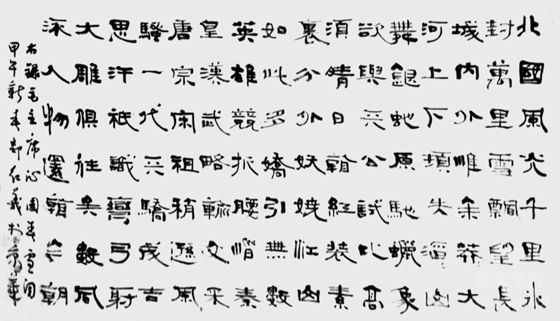 北國風光千里冰
封萬里雪飄望長
城内外惟余莽大
河上下頓失滔山
舞銀蛇原馳蠟象
欲與天公試比高
須晴日看紅裝素
裹分外妖嬈江山
如此多嬌引無數
英雄競折腰惜秦
皇漢武略輸文采
唐宗宋祖稍遜風
騷一代天驕成吉
思汗祇識彎弓射
大雕俱往矣數風
流人物還看今朝
右錄毛主席沁園春雪詞
甲午新春